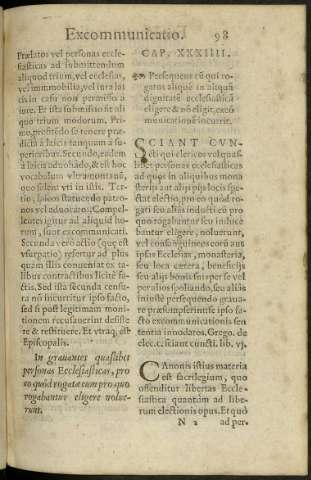 Excommunicatio. 98
Prælatos vel personas eccle-
siasticas ad submittendum
aliquod trium, vel ecclesias,
vel immobilia, vel iura lai
cis in casu non permisso à
iure. Et ista submissio fit ali
quo trium modorum. Pri-
mo, profitēdo se tenere præ-
dicta à laicis tanquam a su-
perioribus. Secundo, eadem
à laicis advohādo, & est hoc
vocabulum ultramontanū,
quo solent vti in istis. Ter-
tio, laicos statuēdo patro-
nos vel aduocatos. Compel-
lentes igitur ad aliquid ho-
rum, sunt excommunicati.
Secunda verò actio (que est
vsurpatio) refertur ad plus
quam illis conueniat ex ta-
libus contractibus licitè fa-
ctis. Sed ista secunda censu-
ra nō incurritur ipso facto,
sed si post legitimam moni-
tionem recusauerint desiste-
re & restituere. Et vtraq; est
Episcopalis.
In grauantes quaslibet
personas Ecclesiasticas, pro
eo quòd rogatæ eum pro quo
rogabantur eligere nolue-
runt.
CAP. XXXIIII.
Persequens eū qui ro-
gatus aliquē in aliquā
dignitatē ecclesiasticā
eligere & nō eligit, exco
municationē incurrit.
SCIANT CVN-
cti qui clericos vel quas-
libet personas ecclesiasticas
ad quos in aliquibus mona-
sterijs aut alijs pijs locis spe-
ctat electio, pro eo quòd ro-
gati seu alias inducti eū pro
quo rogabantur seu induce
bantur eligere, noluerunt,
vel consanguineos eorū aut
ipsas Ecclesias, monasteria,
seu loca cætera, beneficijs
seu alijs bonis suis per se vel
per alios spoliando, seu aliàs
iniustè persequendo graua-
re præsumpserint se ipso fa-
cto excommunicationis sen
tentia innodatos. Grego. de
elec. c. sciant cuncti. lib. vj.
CAnonis istius materia
est sacrilegium, quo
offenditur libertas Eccle-
siastica quantùm ad libe-
rum electionis opus. Et quò
N 2 ad per-